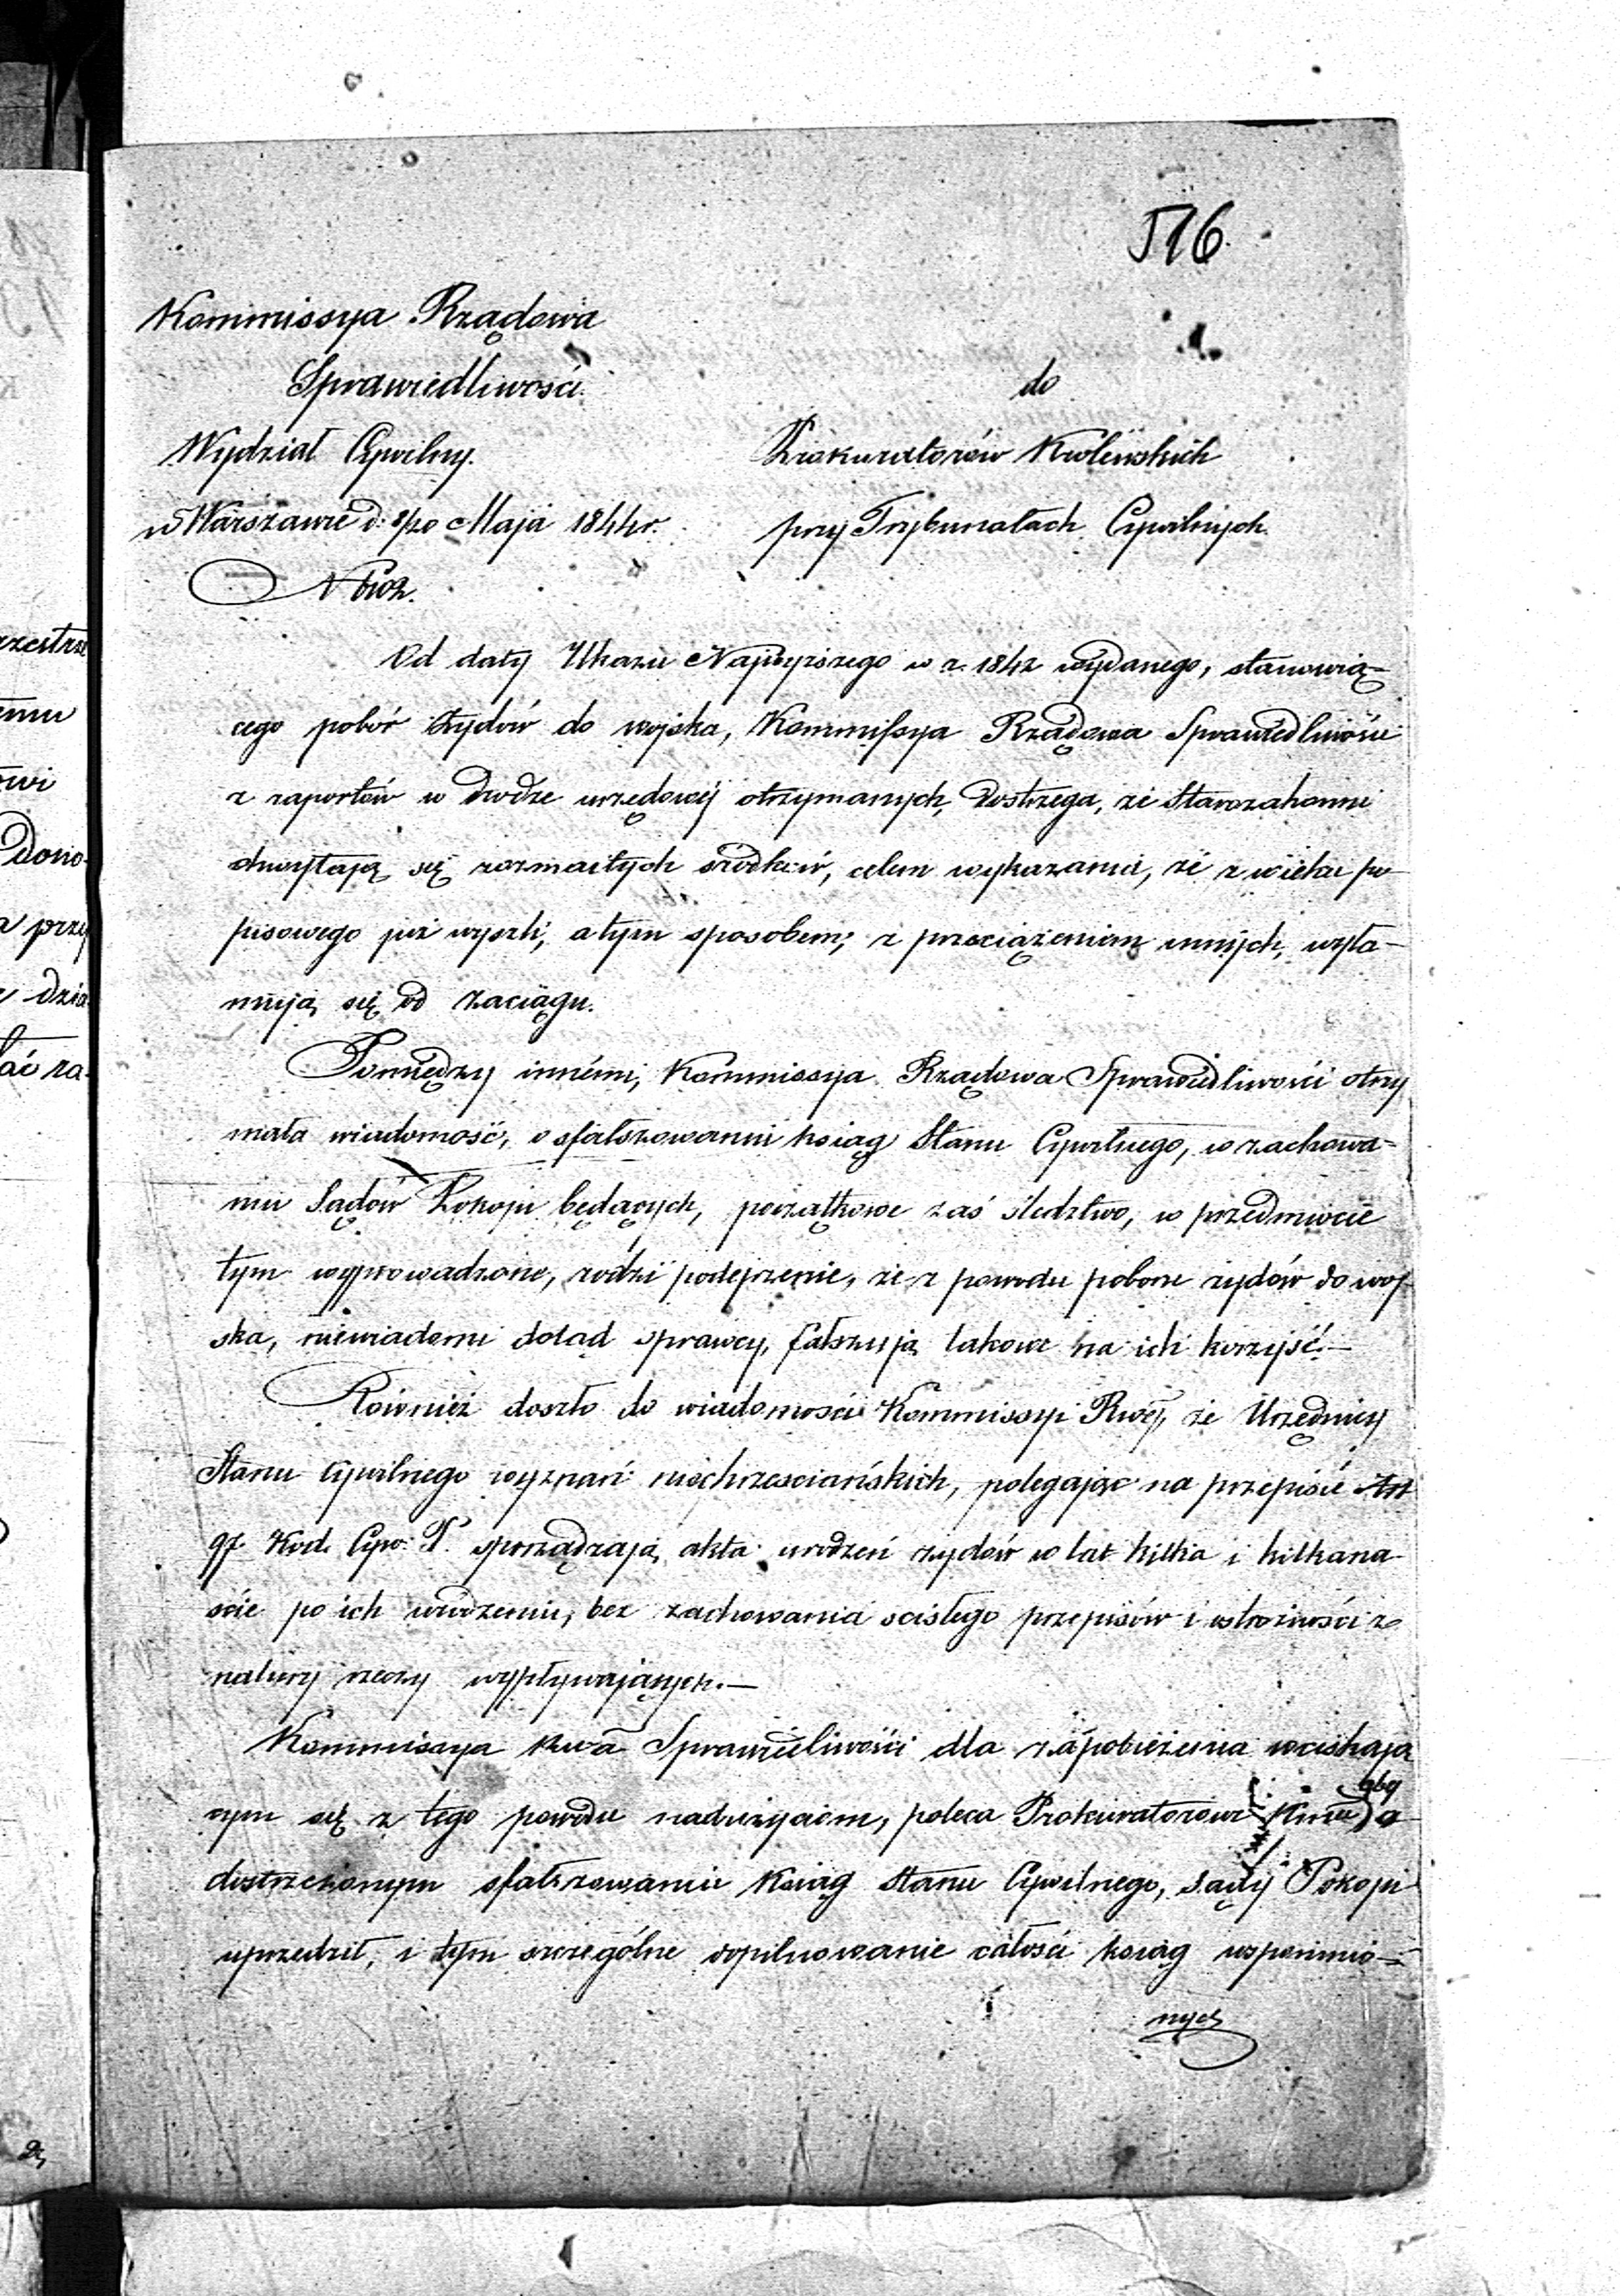 516.
Kommissya Rządowa
Sprawiedliwości
do
Wydział Cywilny.
Prokuratorów Królewskich
w Warszawie d: 8/20 Maja 1844 r.
przy Trybunałach Cywilnych.
N
Od daty Ukazu Najwyższego w r. 1842 wydanego, stanowią-
cego pobór żydów do wojska, Kommissya Rządowa Sprawiedliwości
z raportów w drodze urzędowej otrzymanych, dostrzega, że Starozakonni
chwytają się rozmaitych środków, celem wykazania, że z wieku po-
pisowego już wyszli, a tym sposobem, z przeciążeniem innych, wyła-
mują się od zaciągu.
Pomiędzy innémi, Kommissya Rządowa Sprawiedliwości otrzy
mała wiadomość, o sfałszowaniu ksiąg Stanu Cywilnego, w zachowa-
niu Sądów Pokoju będących, początkowe zaś śledztwo, w przedmiocie
tym wyprowadzone, rodzi podejrzenie, że z powodu poboru żydów do woj-
ska, niewiadomi dotąd sprawcy, fałszują takowe na ich korzyść.—
Również doszło do wiadomości Kommissyi Rwéj, że Urzędnicy
Stanu Cywilnego wyznań niechrześciańskich, polegając na przepisie Art
97. Kod. Cyw. P. sporządzają akta urodzeń żydów w lat kilka i kilkana-
ście po ich urodzeniu, bez zachowania scisłego przepisów i ostrożności z
natury rzeczy wypływających.—
Kommissya Rwa Sprawiedliwości dla zapobieżenia wciskają
cym się z tego powodu nadużyciom, poleca Prokuratorowi aby o
dostrzeżonym sfałszowaniu Ksiąg Stanu Cywilnego, Sądy Pokoju
uprzedził, i tym szczególne dopilnowanie całości ksiąg wspomnio-
nych
zestrze
emu
owi
dono-
a przy
dzia
ać za-